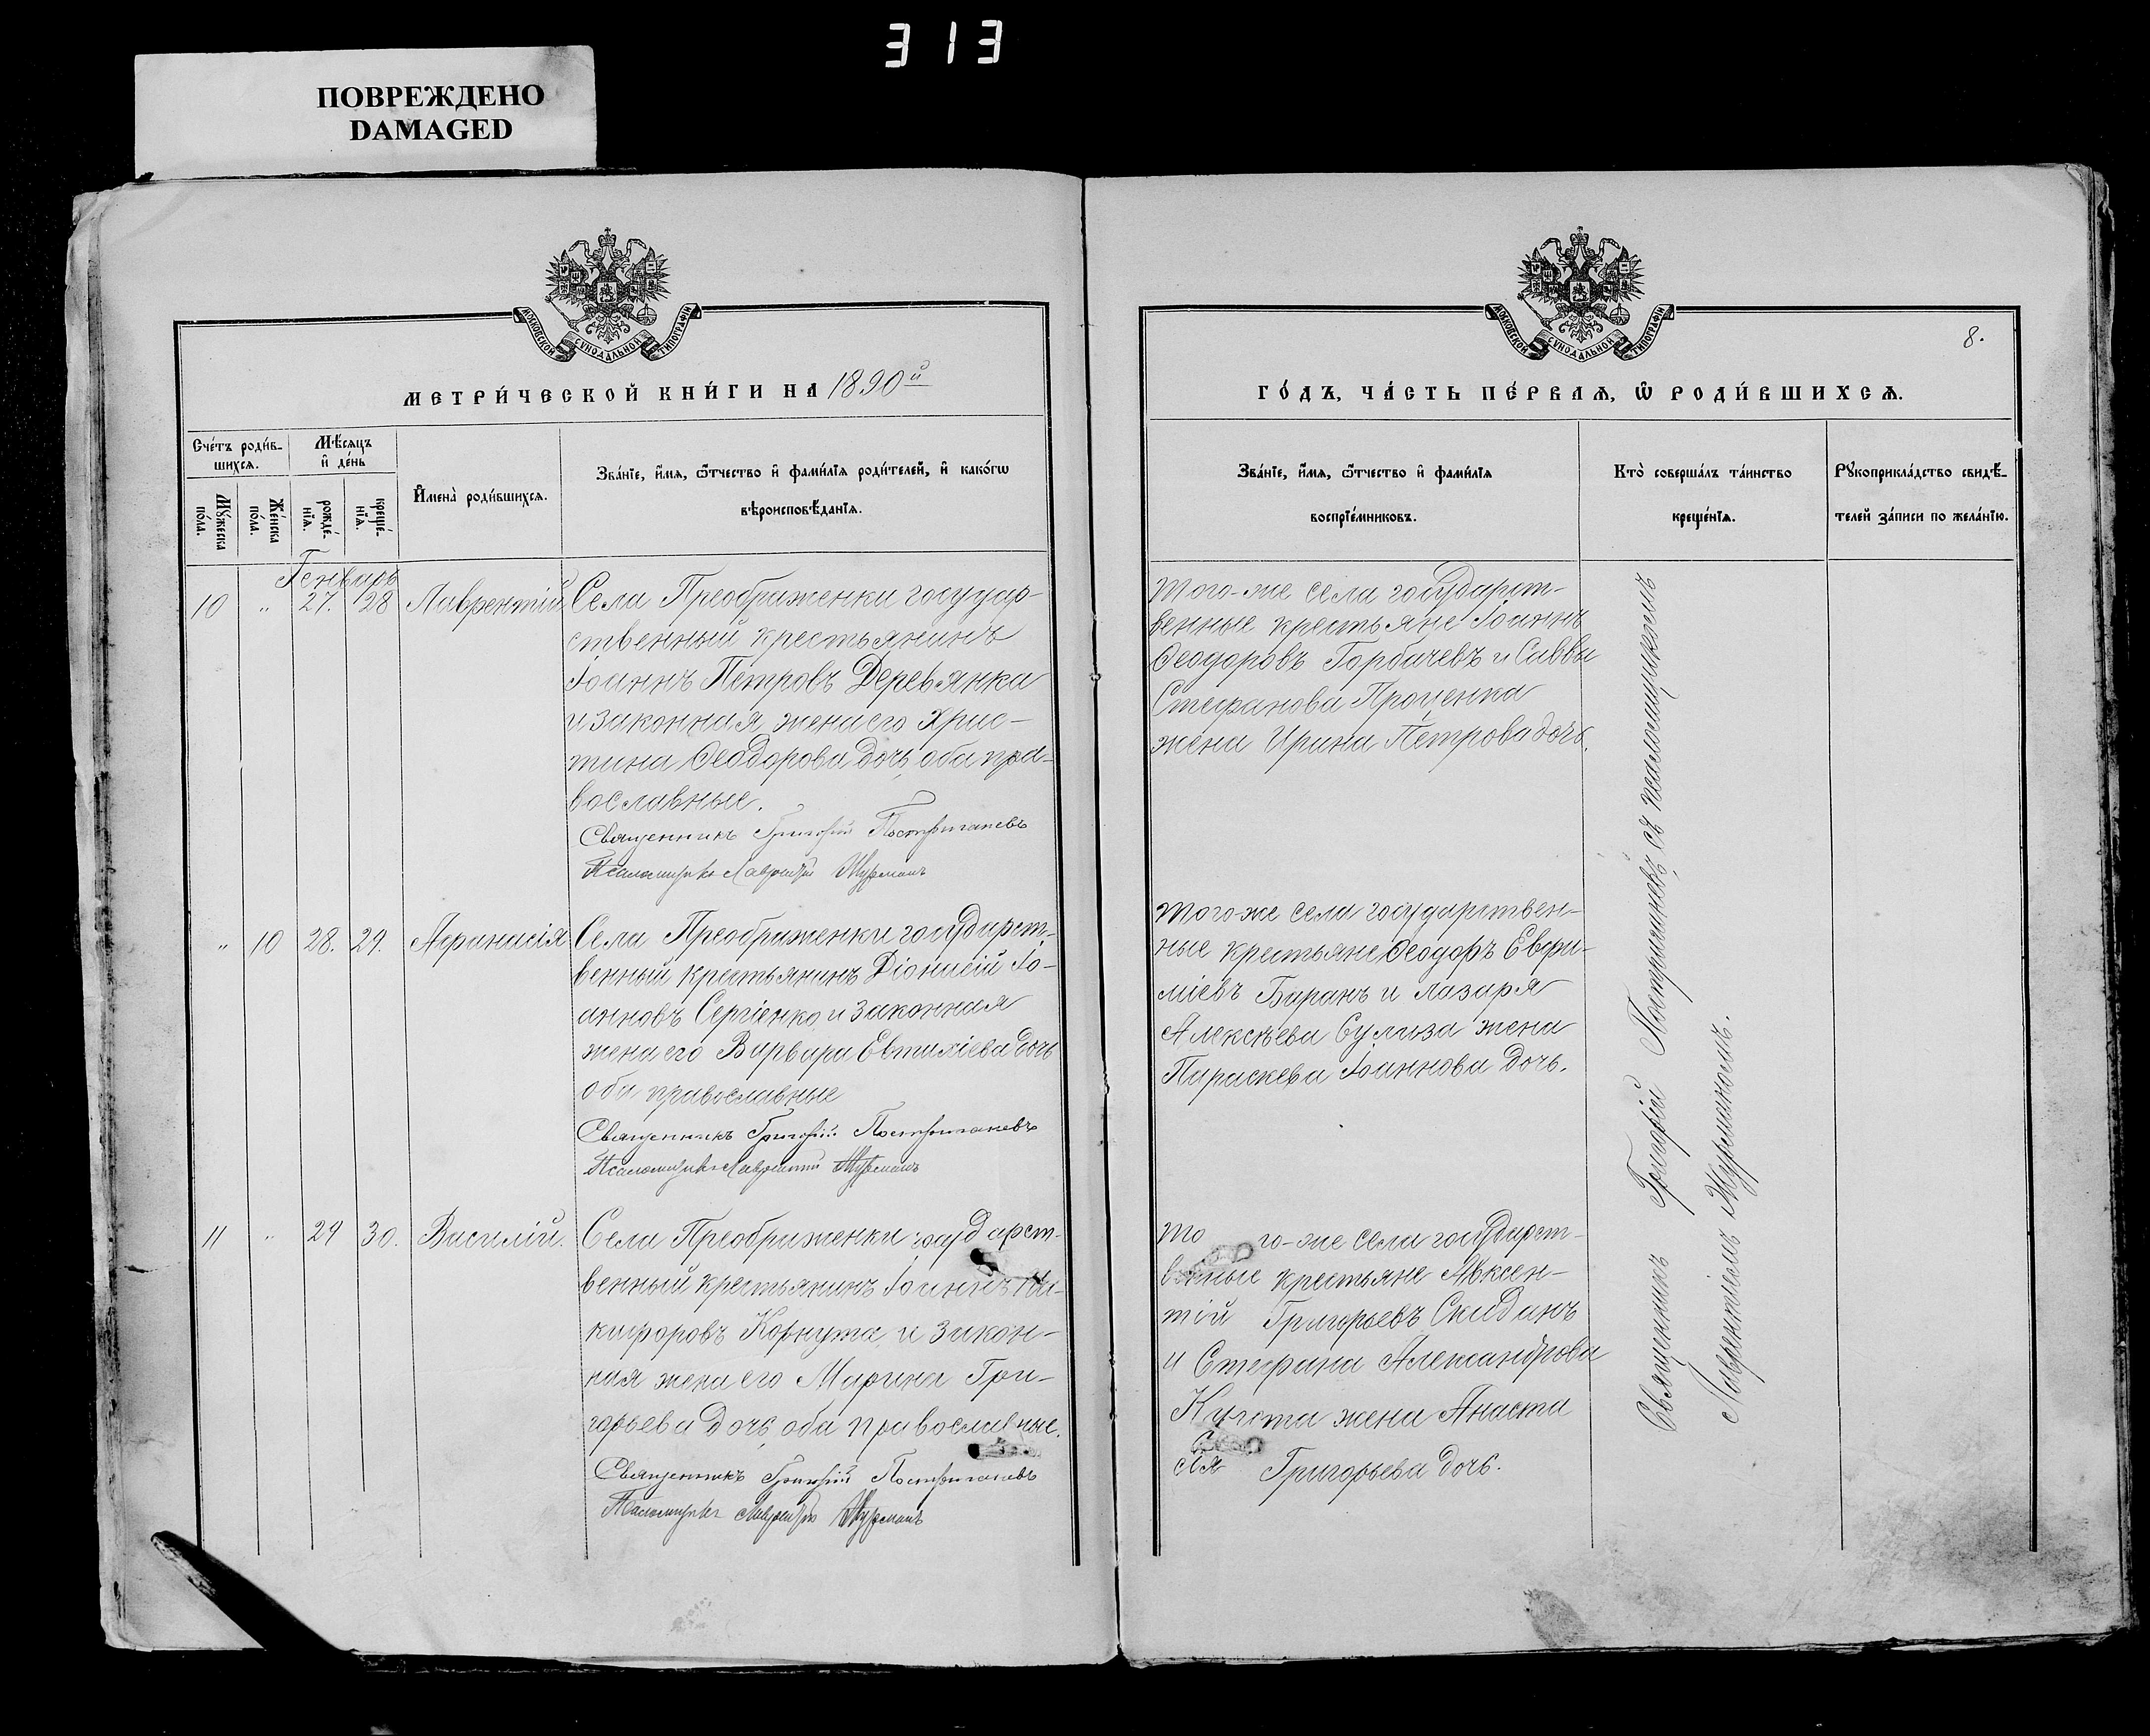 313
ПОВРЕЖДЕНО
DAMAGED
МОСКОВСКОЙ СѴНОДАЛЬНОЙ ТИПОГРАФІИ
МЕТРИ́ЧЕСКОЙ КНИ́ГИ НА 1890й
Сче́тъ роди́в-
шихсѧ.
Мѣ́сѧцъ
и҆ де́нь
И҆мена̀ роди́вшихсѧ.
Зва́нїе, и҆́мѧ, ѻ҆́тчество и҆ фами́лїѧ роди́телей, и҆ како́гѡ
вѣроисповѣ́данїѧ.
Мꙋ́жеска
по́ла.
Же́нска
по́ла.
рожде́-
нїѧ.
креще́-
нїѧ.
Генварь
10 " 27. 28 Лаврентій
Села Преображенки государ-
ственный крестьянинъ
Іоаннъ Петровъ Деревянка
и законная жена его Хрис-
тина Ѳеодорова дочь, оба пра-
вославные.
Священникъ Григорій Постригачевъ
Псаломщикъ Лаврентій Журманъ
" 10 28. 29. Афанасія
Села Преображенки государст-
венный крестьянинъ Діонисій Іо-
анновъ Сергіенко, и законная
жена его Варвара Евтихіева дочь
оба православные
Священникъ Григорій Постригачевъ
Псаломщикъ Лаврентій Журманъ
11 " 29 30. Василій.
Села Преображенки государст-
венный крестьянинъ Іоаннъ Ни-
кифоровъ Корнута, и закон-
ная жена его Марина Гри-
горьева дочь, оба православные.
Священникъ Григорій Постригачевъ
Псаломщикъ Лаврентій Журманъ
МОСКОВСКОЙ СѴНОДАЛЬНОЙ ТИПОГРАФІИ
8.
ГО́ДЪ, ЧА́СТЬ ПЕ́РВАѦ, Ѽ РОДИ́ВШИХСѦ.
Зва́нїе, и҆́мѧ, ѻ҆́тчество и҆ фами́лїѧ
воспрїе́мниковъ.
Кто̀ соверша́лъ та́инство
креще́нїѧ.
Рꙋкоприкла́дство свидѣ́-
телей за́писи по жела́нїю.
Того-же села государст-
венные крестьяне Іоаннъ
Ѳеодоровъ Горбачевъ и Саввы
Стефанова Проценка
жена Ирина Петрова дочь.
Того-же села государствен-
ные крестьяне Ѳеодоръ Евфи-
міевъ Баранъ и Лазаря
Алексѣева Сулиза жена
Параскева Іоаннова дочь.
То го-же села государст-
венные крестьяне Авксен-
тій Григорьевъ Скиданъ
и Стефана Александрова
жена Анаста
сія Григорьева дочь.
Священникъ Григорій Постригачевъ, съ псаломщикомъ
Лаврентіемъ Журманомъ.